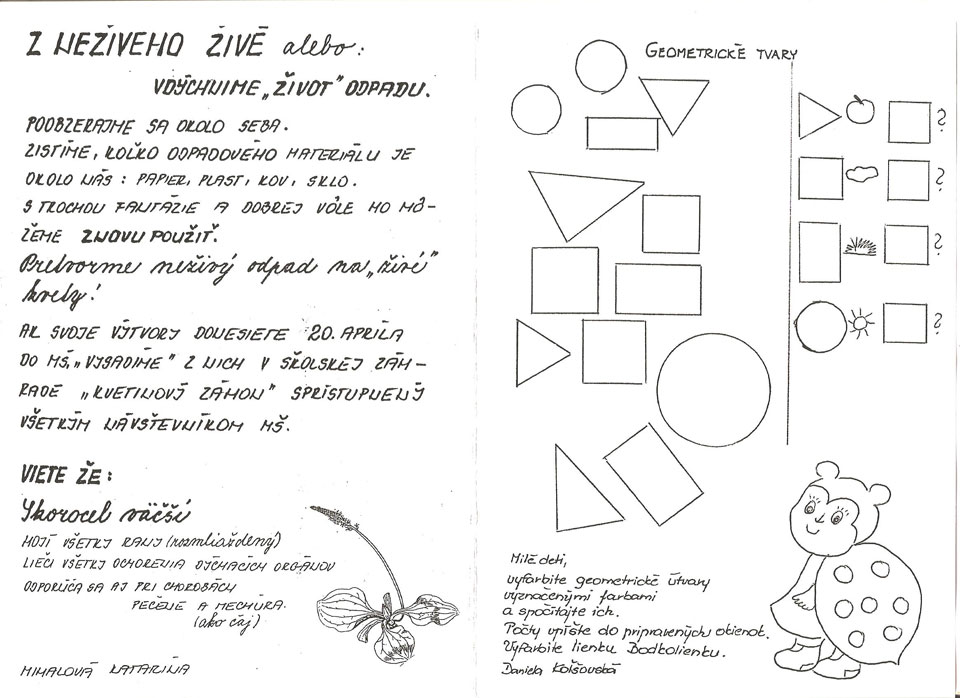 Z NEŽIVÉHO ŽIVÉ alebo:
VDÝCHNIME „ŽIVOT" ODPADU.
POOBZERAJME SA OKOLO SEBA.
ZISTÍME, KOĽKO ODPADOVÉHO MATERIÁLU JE
OKOLO NÁS: PAPIER, PLAST, KOV, SKLO.
S TROCHOU FANTÁZIE A DOBREJ VÔLE HO MÔ-
ŽEME ZNOVU POUŽIŤ.
Pretvorme neživý odpad na „živé"
kvety!
AK SVOJE VÝTVORY DONESIETE 20. APRÍLA
DO MŠ, „VYSADÍME" Z NICH V ŠKOLSKEJ ZÁH-
RADE „KVETINOVÝ ZÁHON" SPRÍSTUPNENÝ
VŠETKÝM NÁVŠTEVNÍKOM MŠ.
VIETE ŽE:
Skorocel väčší
HOJÍ VŠETKY RANY (rozmliaždený)
LIEČI VŠETKY OCHORENIA DÝCHACÍCH ORGÁNOV
ODPORÚČA SA AJ PRI CHOROBÁCH
PEČENE A MECHÚRA.
(ako čaj)
MIHALOVÁ KATARÍNA
GEOMETRICKÉ TVARY
?
?
?
?
Milé deti,
vyfarbite geometrické útvary
vyznačenými farbami
a spočítajte ich.
Počty vpíšte do pripravených okienok.
Vyfarbite lienku Bodkolienku.
Daniela